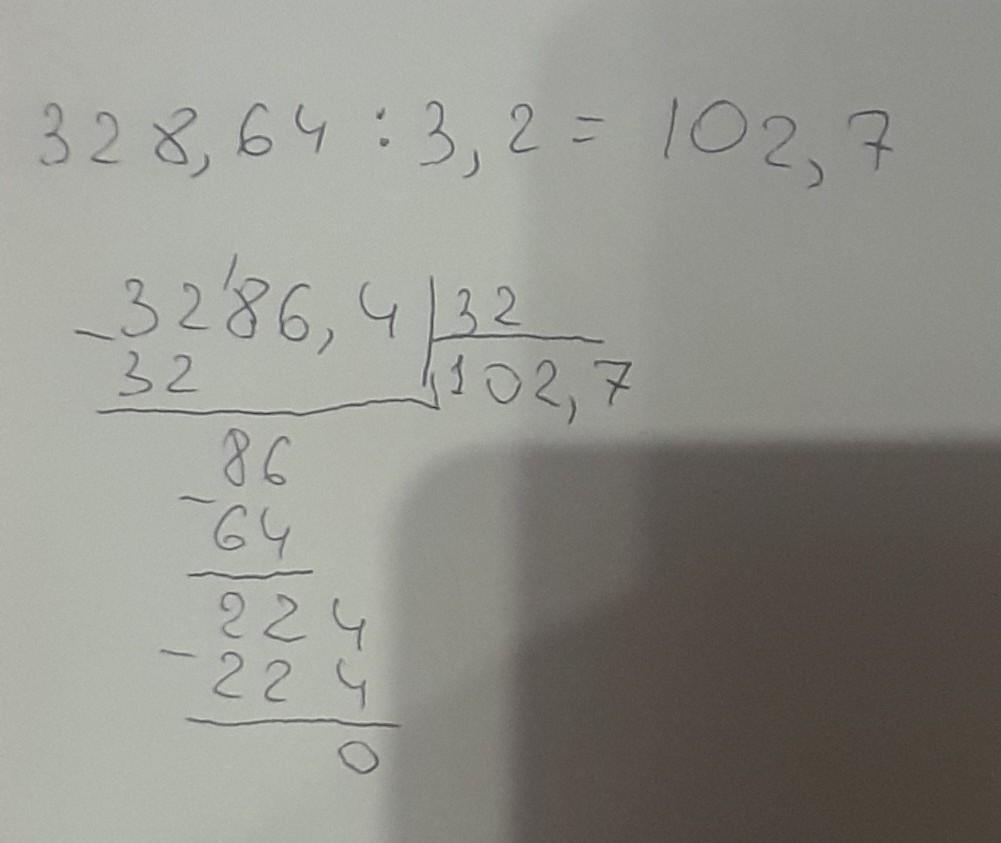 328,64 : 3,2 = 102,7
3286,4 | 32
- 32 | 102,7
86
- 64
224
- 224
0